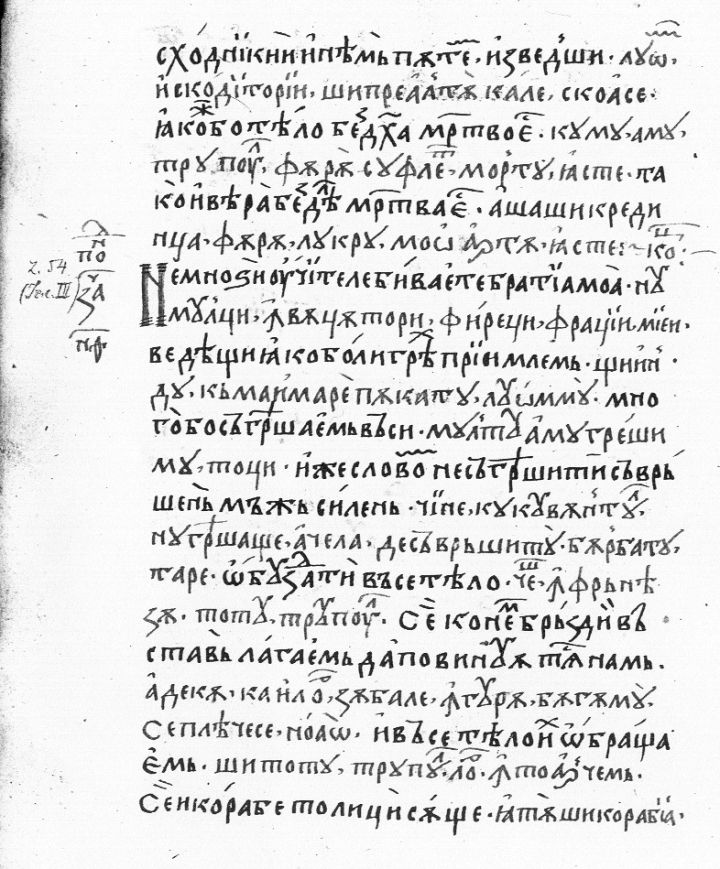 схо́дни́кꙑи и҆нѣ́мь пѫте́, и҆зве́дши · лꙋѡ҆,
и҆скоди́торїи, шипреа҆лтѫ ка́ле, скоа́се·
ꙗ҆ко́жⷤбо тѣ́ло беꙁⷥдꙋ́ха мр҃тво е҆́сⷭ҇ · кꙋмꙋ, а҆мꙋ,
трꙋпоу́лⷧ, фѫрѫ сꙋфле́тⷮ, мо́ртꙋ, ꙗ҆сте · та
ко̀ и҆вѣ́ра беꙁⷥдѣ́лⷧ мр҃тва е҆́сⷭ҇ · ашаши креди
нца, фѫрѫ, лꙋкрꙋ, моѡ҆ артѫ, ꙗ҆сте : ко҆
Не мно́ꙃи оу҆чи́теле бива́ете бра́тїа моа̀ · нꙋ
мꙋлци, ꙟ҆вѫцѫтори, фиреци, фраці́и, мїеи ·
ве́дѣщи ꙗ҆ко бо́ли грѣ́хⷯ прїи́млемь · щїи́нⷩ
дꙋ, кь маи҆ маре пѫкатꙋ, лꙋѡ҆́ммꙋ̀ · мно
го́ бо съгрѣша́емь въси · мꙋлтꙋ а҆мꙋ греши
мꙋ, тоци · и҆́же сло́вом не съгрѣши́ти съврь
ше́нь мѫжь си́лень · чи́не, кꙋкꙋвѫнтꙋ́лⷧ,
нꙋгрѣша́ще, а҆чела, десъврьшитꙋ̀ · бѫрбатꙋ,
таре · ѡ҆бꙋꙁда́ти въсе тѣ́ло · че́, ꙟ҆фрьнѣ
ꙁѫ · тотꙋ, трꙋпоу́лⷧ. Се́ конемⷨ брьꙁди́ въ
ста́вь лага́емь да повинꙋ́ѫтсѧ намь.
а҆декѫ, каи́лоⷬ҇, ꙁѫбале, ꙟ҆гꙋрѫ, бѫгѫмꙋ̀,
Се плѣ́чесе, но́аѡ҆, и҆въсе тѣ́ло и҆́хⷯ ѡ҆браща
е҆мь · шитотꙋ, трꙋпꙋ́лⷧ, ло́ⷬ҇, ꙟ҆тоарⷬчемь.
Се́ и҆кора́бе толици сѫще · ꙗ҆тѫ шикораби́а,
по
ꙁа
z. 54